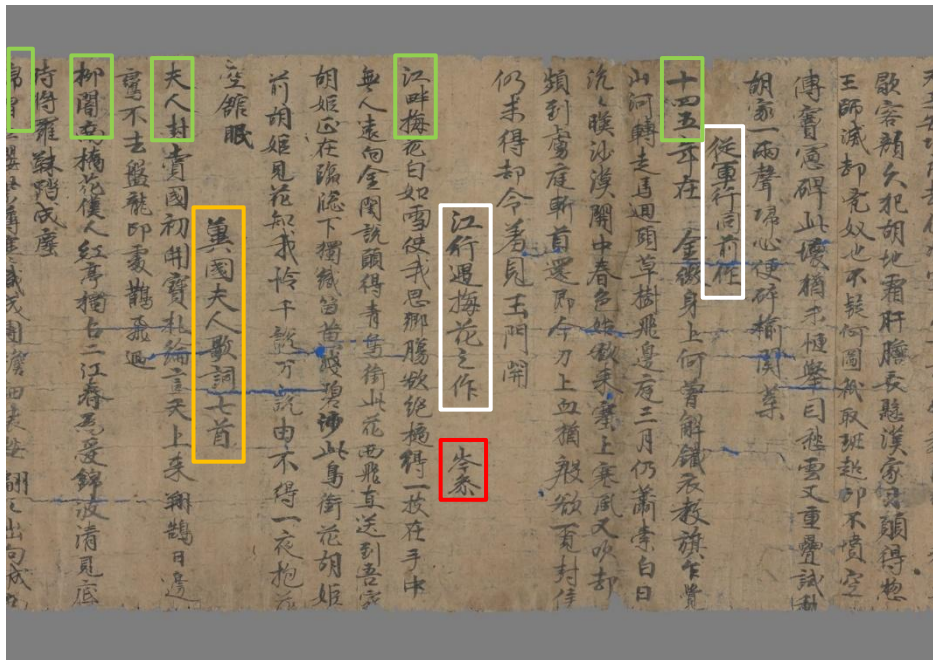 歇容顏久犯胡地霜肝膽長懸漢家月願得惣
王師滅却兇奴也不疑何圖祇取班超印不憤空
傳竇憲碑此懷猶未愜舉目愁雲又重疊試動
胡家一兩聲歸心便碎榆關葉
從軍行同前作
十四五年在金微身上何曾解鐵衣數旗乍覺
山河轉走馬迴頭草樹飛邊庭三月仍蕭索白日
沉々映沙漠關中春色始欲來塞上寒風又吹却
頻到虜庭斬首還即今刀上血猶殷欲覓封侯
仍未得却令羞見玉門關
江行遇梅花之作 岑参
江畔梅花白如雪使我思鄉腸欲絕摘得一枝在手中
無人遠向金閨說願得青鳥銜此花西飛直送到吾家
胡姬正在臨窓下獨織留黃淺碧沙此鳥銜花胡姬
前胡姬見花知我怜千說万說由不得一夜抱花
空舘眠
冀國夫人歌詞七首
夫人封賣國初開寶札綸言天上來翔鵲日邊
鸞不去盤龍印處鵲飛迴
柳闇南橋花僕人紅亭獨占二江春為受錦波清見底
時將羅襪踏成塵